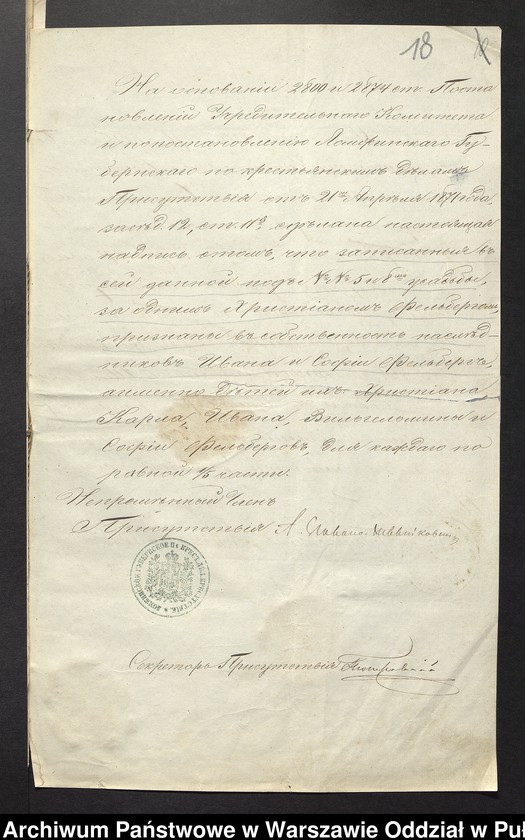 18 18
На основаніи 2800 и 2874 ст. Поста
новленій Учредительнаго Комитета
и по постановленію Ломжинскаго Гу-
бернскаго по крестьянскимъ дѣламъ
Присутствія отъ 21го Апрѣля 1871 года,
засѣд. 12, ст. 11я сдѣлана настоящая
надпись о томъ, что записанныя въ
сей данной подъ №№ 5 и 6мъ усадьбы,
за однимъ Христіаномъ Фельбергомъ,
признаны въ собственность наслѣд-
никовъ Ивана и Софіи Фельбергъ,
а именно дѣтей ихъ: Христіана,
Карла, Ивана, Вильгельмины и
Софіи Фельберговъ, для каждаго по
равной 1/5 части.
Непремѣнный Членъ
Присутствія А.
Секретарь Присутствія
Archiwum Państwowe w Warszawie Oddział w Puł